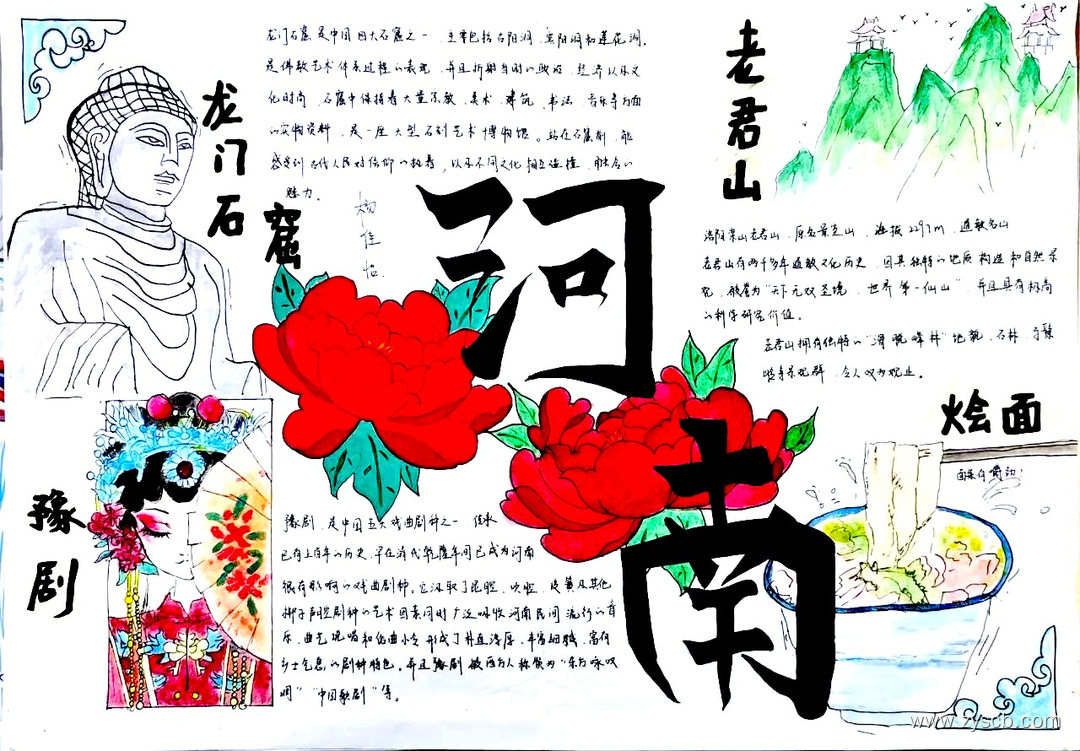 龙门石窟
龙门石窟是中国四大石窟之一,主要包括古阳洞、宾阳洞和莲花洞。
是佛教艺术体系过程的表现,并且折射当时的政治、经济以及文
化时尚,石窟中保持着大量宗教、美术、建筑、书法、音乐等方面
的实物资料,是一座大型石刻艺术博物馆。站在石窟前,能
感受到古代人民对信仰的执着,以及不同文化相互碰撞、融合的
魅力。
杨佳怡
河南
老君山
洛阳栾川老君山,原名景室山,海拔2297m,道教名山
老君山有两千多年道教文化历史,因其独特的地质构造和自然景
观,被誉为“天下无双圣境,世界第一仙山”,并且具有极高
的科学研究价值。
老君山拥有独特的“滑脱峰林”地貌,石林
等景观群,令人叹为观止。
烩面
面条有嚼劲!
豫剧
豫剧,是中国五大戏曲剧种之一,
已有上百年的历史,早在清代乾隆年间已成为河南
很有影响的戏曲剧种。它汲取了昆腔、吹腔、皮黄及其他
梆子声腔剧种的艺术因素同时广泛吸收河南民间流行的音
乐、曲艺说唱和俗曲小令,形成了朴直淳厚、丰富细腻、富有
乡土气息的剧种特色。并且豫剧被西方人称赞为“东方咏叹
调”“中国歌剧”等。
www.zyscb.com